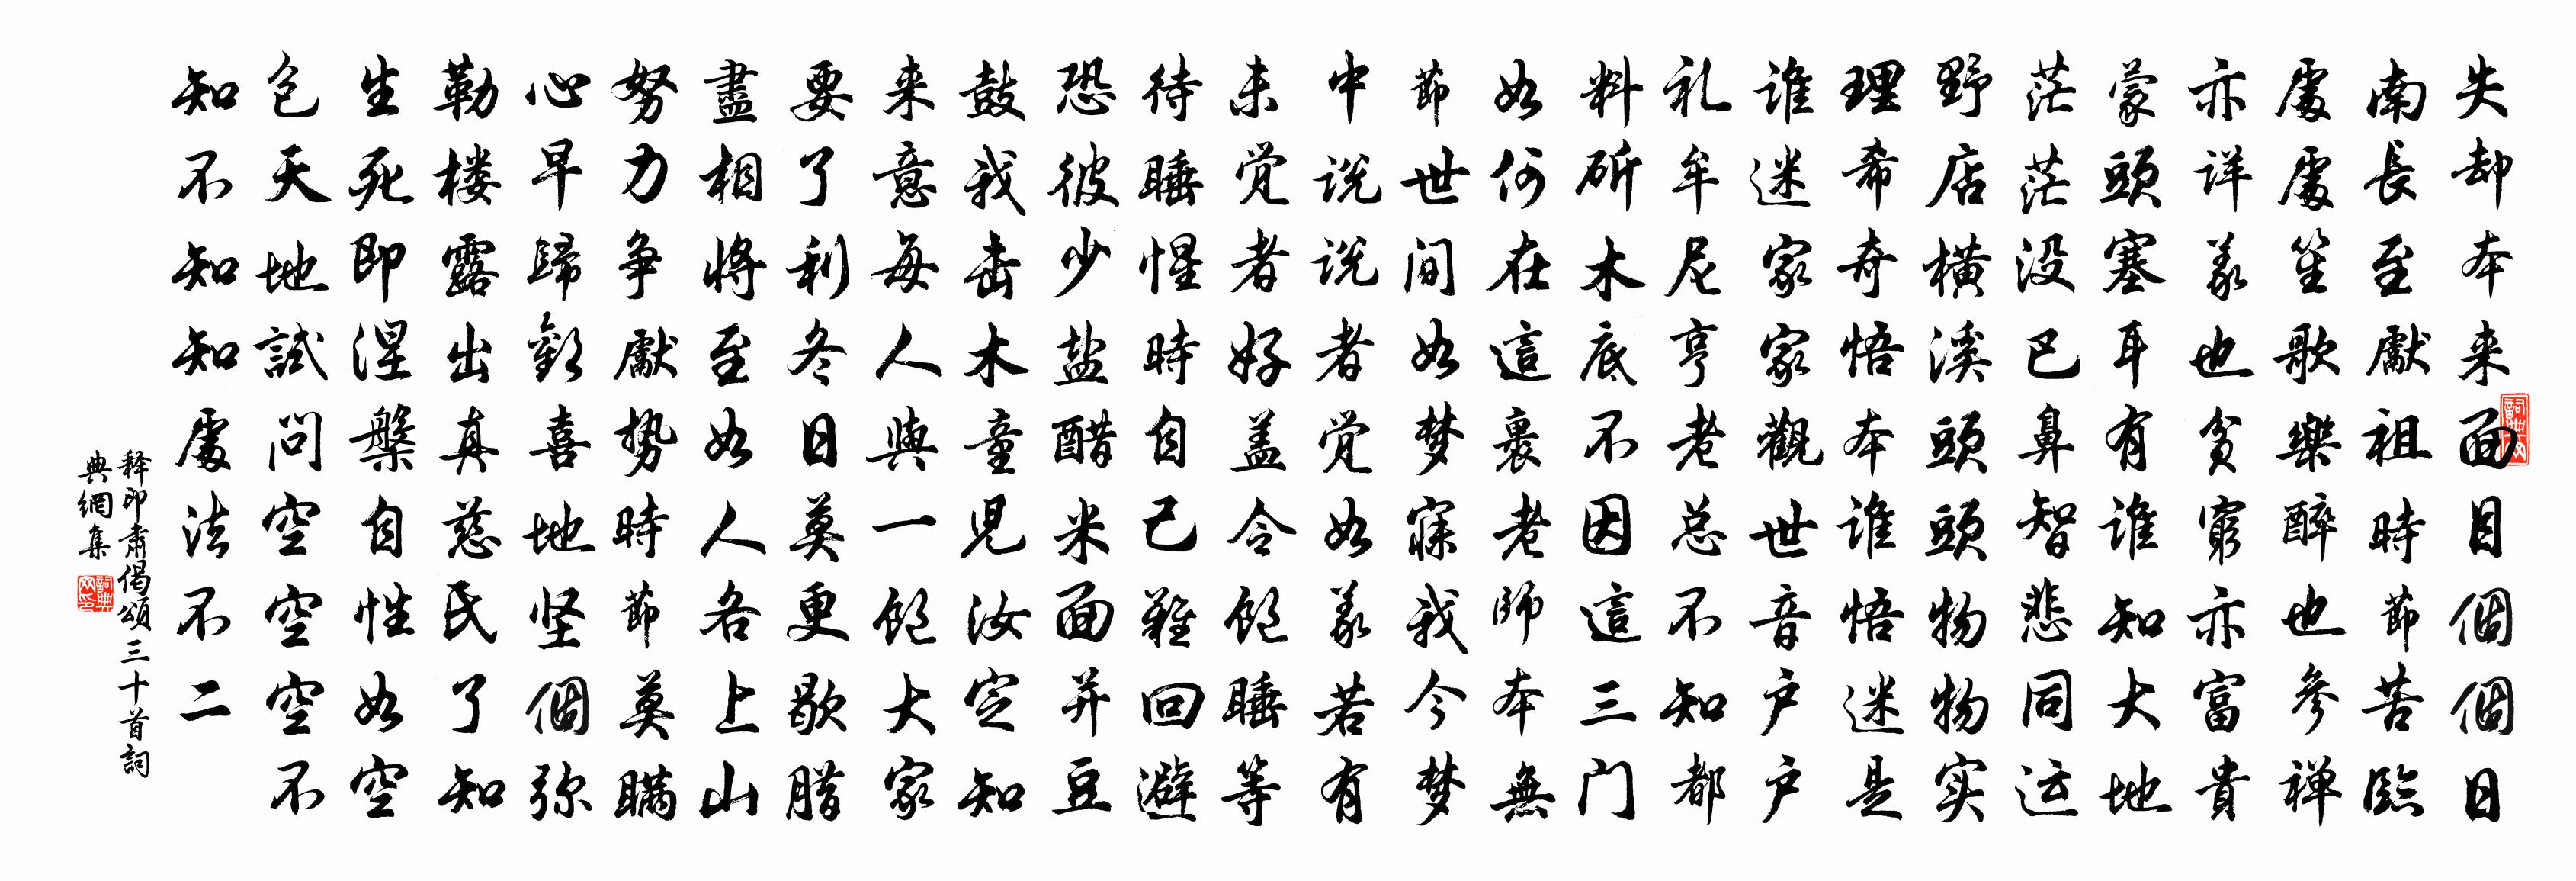 失却本来面目個個日
南長至獻祖時節苦臨
處處笙歌樂醉也參禅
亦詳義也貧窮亦富貴
蒙頭塞耳有谁知大地
茫茫没巴鼻智悲同运
野店橫溪頭頭物物实
理希奇悟本谁悟迷是
谁迷家家觀世音户户
礼牟尼亨老总不知都
料斫木底不因這三门
如何在這裏老師本無
節世间如梦寐我今梦
中说说者觉如義若有
未觉者好盖令饱睡等
待睡惺時自己難回避
恐彼少盐醋米面并豆
鼓我击木童児汝定知
来意每人與一饱大家
要了利冬日莫更歇腊
盡相將至如人各上山
努力争獻勢時節莫瞞
心早歸歡喜地坚個弥
勒楼露出真慈氏了知
生死即涅槃自性如空
包天地試问空空空不
知不知知處法不二
释印肅偈頌三十首詞
典網集